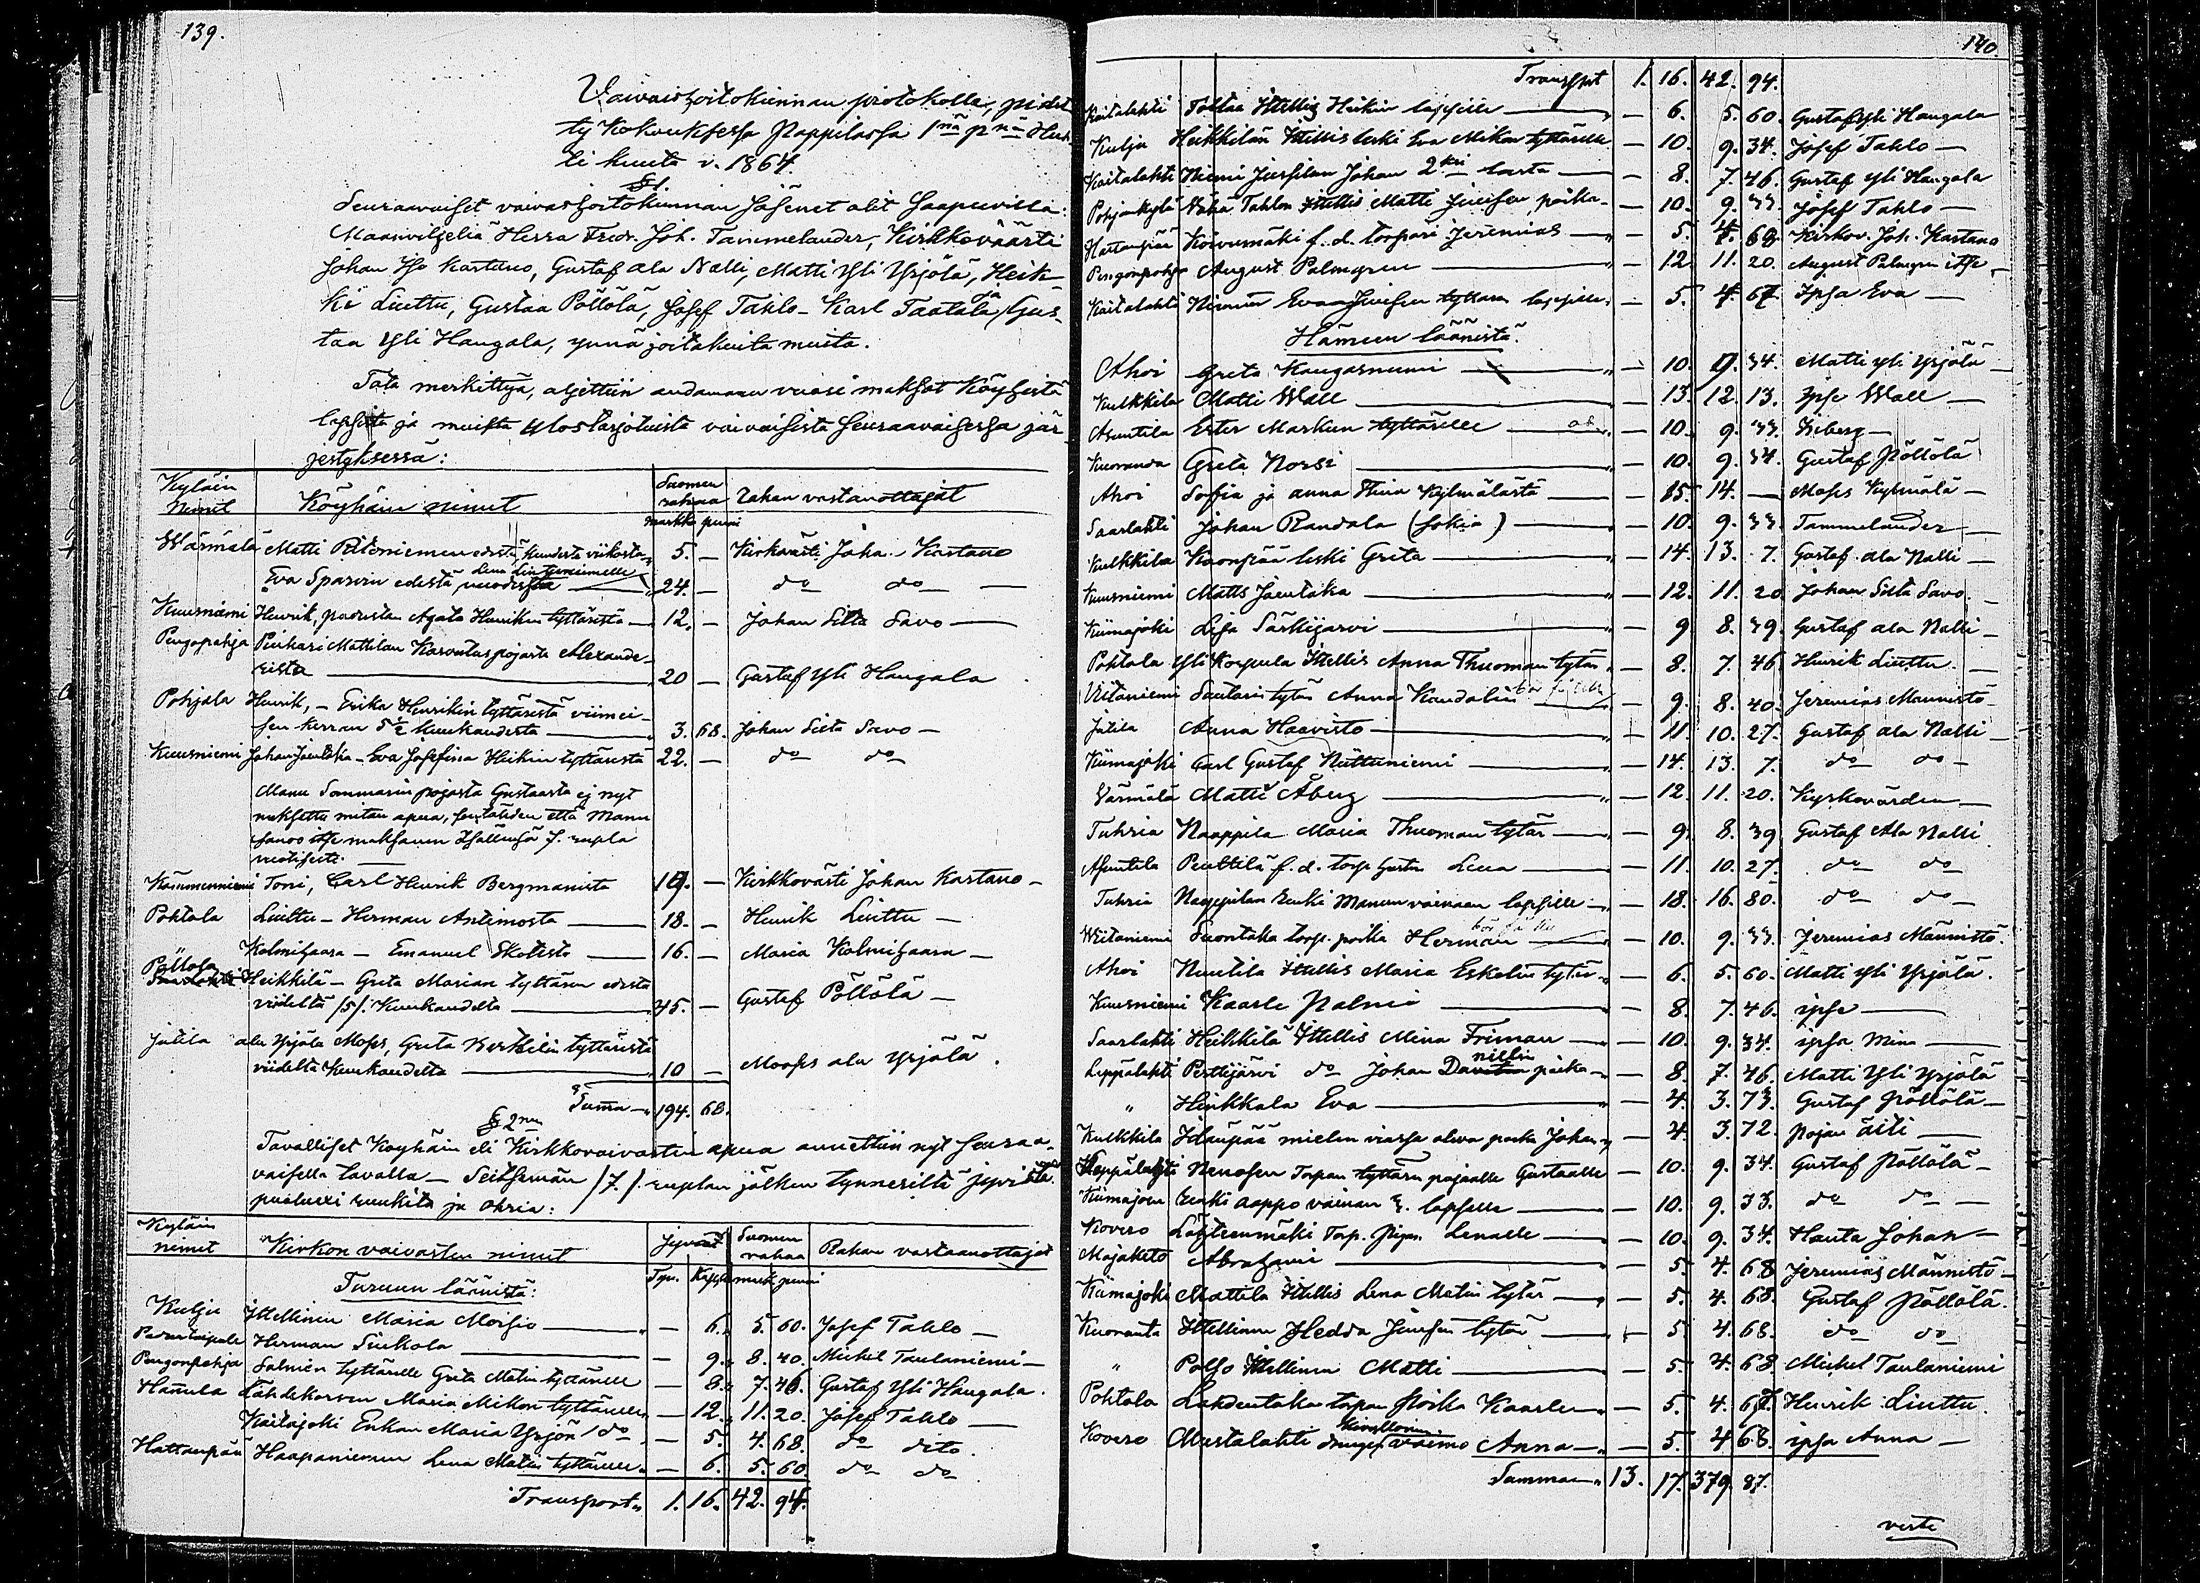 139.
Vaivashoitokunnan protokolla, pidet
ty Kokouksessa Pappilassa 1nä pnä Huh
ti kuuta v. 1864.
§1.
Seuraavaiset vaivashoitokunnan Jäsenet olit Saapuvilla:
Maanviljeliä Herra Fredr. Joh. Tammelander, Kirkkoväärti
Johan Iso Kartano, Gustaf ala Nälli, Matti Yli Yrjölä, Heik-
ki Liuttu, Gustaa Pöllölä, Josef Tahlo - Karl Taatala ja Gus-
taa Yli Hangala, ynnä joitakuita muita.
Tota merkittyä, aljettiin andamaan vuosi maksot Köyhistä
lapsista ja muista Ulostarjotuista vaivaisista Seuraavaisessa jär-
jestyksessä:
Kyläin nimet Köyhäin nimet Suomen rahaa Rahan vastanottajat
markka penni
Wärmälä Matti Riitoniemen edestä, kuudesta viikosta 5. — Kirkväärti Joha. Kartano
Eva Sparvin edestä vuodesta 24. — do do —
Kuusniemi Henrik, puustan Agata Henrikin tyttärestä — 12. — Johan Silta Savo —
Pengopohja Piukari Mattilan Kasvatus pojasta Alexande-
rista — 20 — Gustaf Yli Hangala
Pohjala Henrik, - Erika Henrikin tyttärestä viimei-
sen kerran 5½ kuukaudesta — 3. 68. Johan Silta Savo —
Kuusniemi Johan Jäentaka - Eva Josefiina Heikin tyttärestä 22. — do do
Manu Sommarin pojasta Gustaasta ej nyt
maksettu mitän apua, sentähden että Manu
sanoo itse maksavan Isällensä 7. rupla
vuotisesti. —
Kämmenniemi Toni, Carl Henrik Bergmanista 19. — Kirkkovärti Johan Kartano —
Pohtola Liuttu - Herman Antinosta — 18. — Henrik Liuttu —
Kalmihaara - Emanuel Ekolista — 16. — Maria Kalmihaara —
Pöllölä Heikkilä - Greta Marian tyttären edestä
viideltä /5/. Kuukaudelta — 45. — Gustaf Pöllölä —
Jutila ala Yrjölä Moses, Greta Berthilin tyttärestä
viideltä Kuukaudelta — 10 — Mooses ala Yrjölä.
Suma — 194. 68.
§ 2nen
Tavalliset Köyhäin eli Kirkkovaivasten apua annettiin nyt Seuraa-
vaisella tavalla - Seitsemän /7/. ruplan jälken tynneriltä jyvistä
puoleksi ruukita ja ohria:
Kyläin nimet Kirkon vaivasten nimet Jyvät Suomen rahaa Rahan vastaanottajat
Tyn. Kapp. mark penni
Turuun läänistä:
Kulju Itellinen Maria Morsio — — 6. 5. 60. Josef Tahlo —
Parantaipale Herman Siukola — — 9. 8. 40. Mickel Taulaniemi —
Pengonpohja Salmen tyttärelle Greta Matin tyttärelle — 8. 7. 46. Gustaf Yli Hangala.
Hanula Lähdekorven Maria Mikon tyttärelle — 12. 11. 20. Josef Tahlo —
Kaitajoki Enkan Maria Yrjön do — 5. 4. 68. do dito.
Hattanpää Haapaniemen Lena Matin tyttärelle — 6. 5. 60 do do
Transport 1. 16. 42. 94.
140
Transport 1. 16. 42. 94.
Kaitalahti Tahlaa Itellig Heikin lapsille — — 6. 5. 60. Gustaf Yli Hangala
Kulju Heikkilän Itellis leski Eva Mikon tyttärelle — 10. 9. 34. Josef Tahlo —
Kaitalahti Niemi Juosilan Johan 2 lasta — — 8. 7. 46. Gustaf Yli Hangala
Pohjankylä Vähä Tahlon Itellis Matti Juusen poika — 10. 9. 33. Josef Tahlo —
Hattanpää Koivumäki f. d. torpari Jeremias — — 5. 4. 68. Kirkov. Joh. Kartano
Pengonpohja August Palmgren — — 12. 11. 20. August Palmgren itse —
Kaitalahti Niemen Eva Juusen tyttären lapsille — 5. 4. 67. Ipsa Eva —
Hämeen läänistä.
Ahoi Greta Kangasniemi — — 10. 9. 34. Matti Yli Yrjölä —
Kulkkila Matti Wall — — 13. 12. 13. ipse Wall —
Asuntila Ester Markun tyttärelle — — 10. 9. 33. Viberg —
Kuoranda Greta Norsi — — 10. 9. 34. Gustaf Pöllölä
Ahoi Sofia ja Anna Stina Kylmälästä — — 15. 14. — Moses Kylmälä —
Saarlahti Johan Randala (sokia) — — 10. 9. 33. Tammelander —
Kulkkila Kaonpää leski Greta — — 14. 13. 7. Gustaf ala Nälli —
Kuusniemi Matts Jäentaka — — 12. 11. 20. Johan Silta Savo. —
Kiimajoki Lisa Särkijärvi — — 9 8. 39. Gustaf ala Nälli —
Pohtola Yli Korpula Itellis Anna Thuoman tytär — 8. 7. 46. Henrik Liuttu. —
Viitaniemi Santarin tytär Anna Kandalin — 9. 8. 40. Jeremias Männistö —
Jutila Anna Haavisto — — 11. 10. 27. Gustaf ala Nälli —
Kiimajoki Carl Gustaf Niittuniemi — — 14. 13. 7. do do —
Värmälä Matti Åberg — — 12. 11. 20. Kyrkovärden —
Tuhria Naappila Maria Thuoman tytär — — 9. 8. 39 Gustaf Ala Nälli.
Asuntila Penttilä f. d. torp. Gustav Lena — — 11. 10. 27. do do
Tuhria Nappilan Renki Manun vainaan lapsille — 18. 16. 80. do do —
Viitaniemi Suontaka torp. poika Herman — — 10. 9. 33. Jeremias Männistö.
Ahoi Nuutila Itellis Maria Eskelin tytär — 6. 5. 60. Matti Yli Yrjölä.
Kuusniemi Kaarle Palmi — — 8. 7. 46. ipse —
Saarlahti Heikkilä Itellis Mina Friman — — 10. 9. 34. ipsa Mina —
Leppälahti Perttijärvi do Johan Davitin poika — 8. 7. 46. Matti Yli Yrjölä
" Heikkala Eva — — 4. 3. 73. Gustaf Pöllölä —
Kulkkila Idänpää mielen viassa oleva poika Johan — 4. 3. 72. Pojan äiti —
Leppälahti Nenosen Torpan tyttären pojalle Gustaalle — 10. 9. 34. Gustaf Pöllölä —
Kiimajoen renki Aappo vainan 3. lapselle — — 10. 9. 33. do do —
Kovero Lähteenmäki Torp. Piijan Lenalle — — 10. 9. 34. Hauta Johan —
Majaketo Abrahami — — 5. 4. 68 Jeremias Männistö —
Kiimajoki Mattila Itellis Lena Matin tytär — — 5. 4. 68. Gustaf Pöllölä.
Kuoranta Itellinen Hedda Juusen tytär — — 5 4. 68. do do
" Palho Itellinen Matti — — 5. 4. 68. Mickel Taulaniemi
Pohtola Lahdentaka torpan Poika Kaarle — — 5. 4. 67. Henrik Liuttu.
Kovero Mustalahti vaimo Anna — — 5. 4 68. ipsa Anna —
Summa 13. 17. 379. 87.
verte